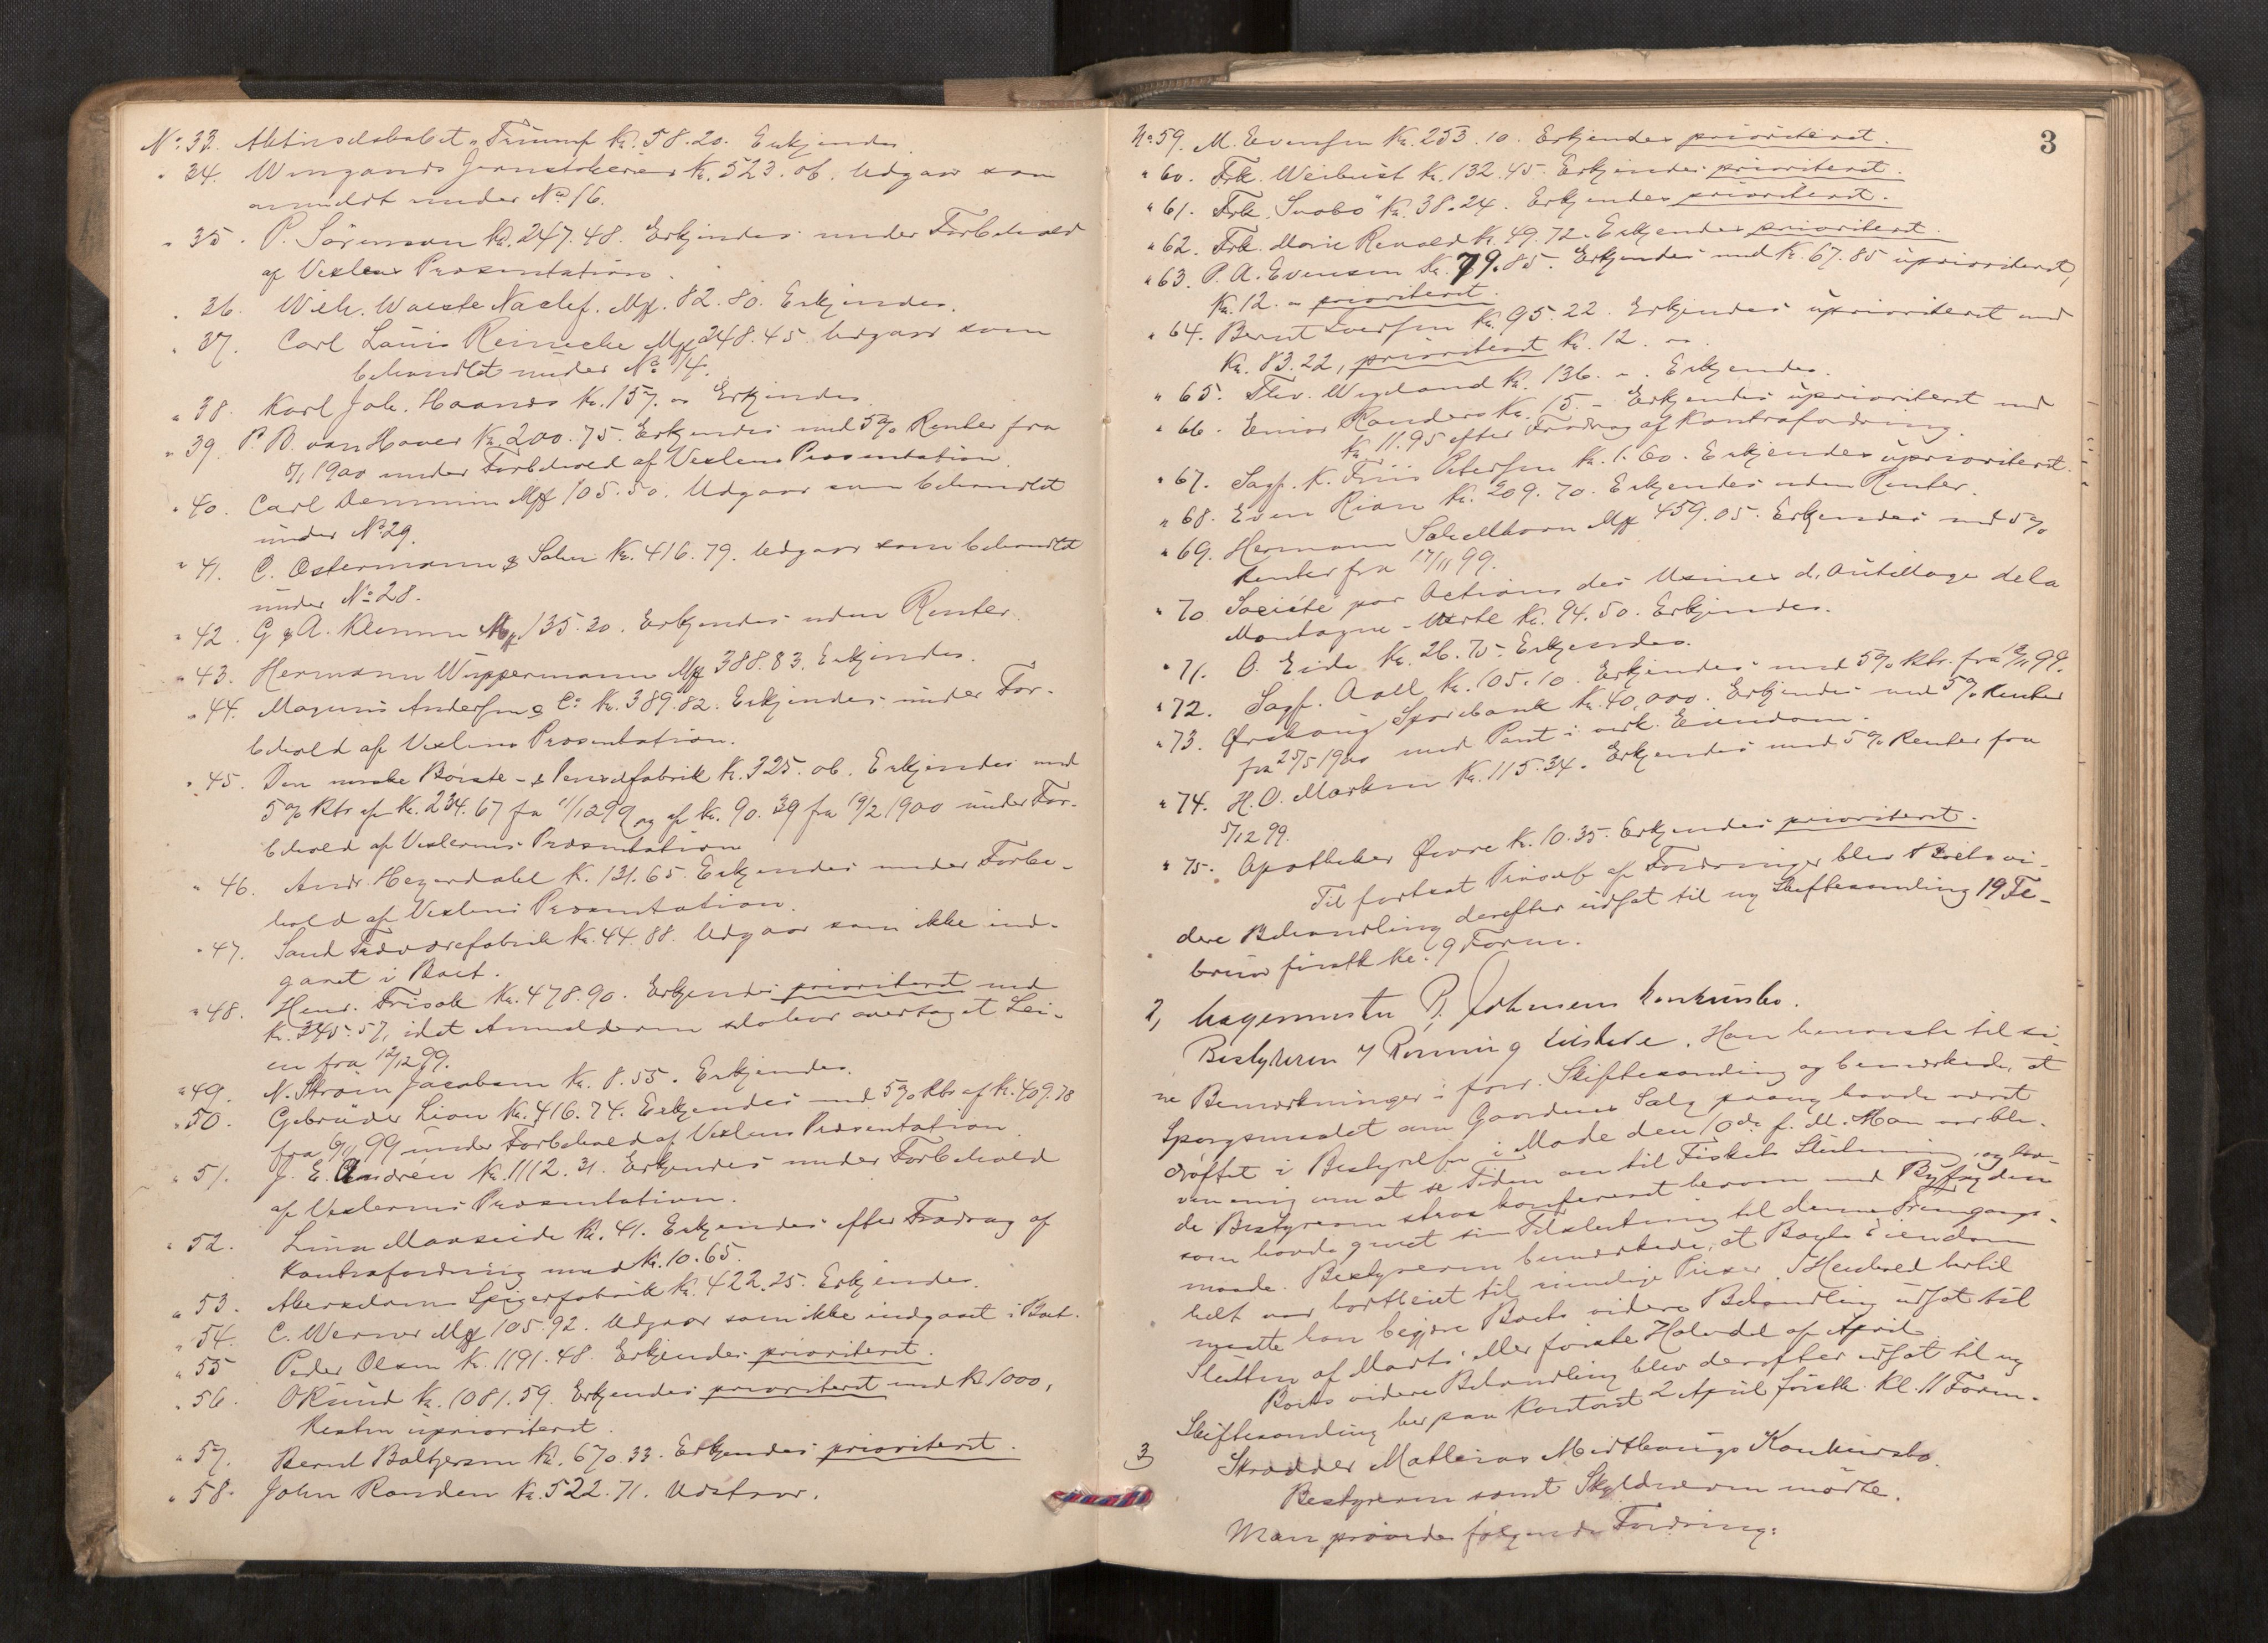 No. 33. Aktieselskabet „Triumf Kr. 58.20. Erkjendes.
" 34. Wingaards Jernstøberier Kr. 523.06. Udgaar som
anmeldt under No. 16.
" 35. P. Sörensen Kr. 247.48. Erkjendes under Forbehold
af Vexlens Præsentation.
" 36. Wilh. Woeste Nachf. Mk. 82.80. Erkjendes.
" 37. Carl Louis Reinecke Mk 248.45. Udgaar som
behandlet under No. 14.
" 38. Karl Joh. Haanes Kr. 157.00 Erkjendes.
" 39. P. B. van Hover Kr. 200.75. Erkjendes med 5% Renter fra
5/1 1900 under Forbehold af Vexlens Præsentation.
" 40. Carl Demmin Mk 105.50. Udgaar som behandlet
under No 29.
" 41. C. Ostermann & Sohn Kr. 416.79. Udgaar som behandlet
under No. 28.
" 42. G & A. Klemm Mk 135.30. Erkjendes uden Renter.
" 43. Hermann Wüppermann Mk 388.83. Erkjendes.
" 44. Magnus Andersen & Co. Kr. 389.82. Erkjendes under For-
behold af Vexlens Præsentation.
" 45. Den norske Børste- & Penselfabrik Kr. 325.06. Erkjendes med
5% Rtr af Kr. 234.67 fra 11/12 99 og af Kr. 90.39 fra 19/2 1900 under For-
behold af Vexlernes Præsentation
" 46. Andr. Hegerdahl Kr. 131.65. Erkjendes under Forbe-
hold af Vexlens Præsentation.
" 47. Sand Trævarefabrik Kr. 44.88. Udgaar som ikke ind-
gaaet i Boet.
" 48. Henr. Frisak Kr. 478.90. Erkjendes prioriteret med
Kr. 345.57, idet Anmelderen selv har overtaget Lei-
en fra 12/12 99.
" 49. N. Strøm Jacobsen Kr. 8.55. Erkjendes.
" 50. Gebrüder Lion Kr. 416.74. Erkjendes med 5% Rtr af Kr. 409.78
fra 6/11 99 under Forbehold af Vexlens Præsentation.
" 51. J. E. Andrén Kr. 1112.31. Erkjendes under Forbehold
af Vexlernes Præsentation.
" 52. Lina Manseide Kr. 41. Erkjendes efter Fradrag af
Kontrafordring med Kr. 10.65.
" 53. Akersdams Spigerfabrik Kr. 422.25. Erkjendes.
" 54. C. Werner Mk 105.92. Udgaar som ikke indgaaet i Boet.
" 55 Peder Olsen Kr. 1191.48. Erkjendes prioriteret.
" 56. O Rund Kr. 1081.59. Erkjendes prioriteret med Kr 1000,
Resten uprioriteret.
" 57. Bernt Baltzersen Kr. 670.33. Erkjendes prioriteret.
" 58. John Randen Kr. 522.71. Udstaar.
3
No. 59. M. Evensen Kr. 253.10. Erkjendes prioriteret.
" 60. Frk. Weibust Kr. 132.45. Erkjendes prioriteret.
" 61. Frk. Svabo Kr. 38.24. Erkjendes prioriteret.
" 62. Frk. Marie Rovold Kr. 49.72. Erkjendes prioriteret.
" 63. P. A. Evensen Kr. 79.85. Erkjendes med Kr. 67.85 uprioriteret,
Kr. 12.00 prioriteret.
" 64. Bernt Iversen Kr. 95.22. Erkjendes uprioriteret med
Kr. 83.22, prioriteret Kr. 12.00.
" 65. Thv. Wigeland Kr. 136.00. Erkjendes.
" 66. Einar Randers Kr. 15.- Erkjendes uprioriteret med
Kr 11.95 efter Fradrag af Kontrafordring.
" 67. Sagf. K. Friis Petersen Kr. 1.60. Erkjendes uprioriteret.
" 68. Even Rian Kr. 209.70. Erkjendes uden Renter.
" 69. Hermann Schellhorn Mk 459.05. Erkjendes med 5%
Renter fra 17/11 99.
" 70 Société par Actions des Usines d'Outillage de la
Montagne-Verte Kr. 94.50. Erkjendes.
" 71. O. Eide Kr. 26.70. Erkjendes.
" 72. Sagf. Aall Kr. 105.10. Erkjendes med 5% Rtr. fra 18/11 99.
" 73. Ørskoug Sparebank Kr. 40,000. Erkjendes med 5% Renter
fra 25/5 1900 med Pant i Eiendom.
" 74. H. O. Marken Kr. 115.34. Erkjendes med 5% Renter fra
5/12 99.
" 75. Apotheker Øvre Kr. 10.35. Erkjendes prioriteret.
Til fortsat Prøvelse af Fordringer blev Boets vi-
dere Behandling derefter udsat til ny Skiftesamling 19 Fe-
bruar førstk. Kl. 9 Form.
2, Bagermester P. Johnsens Konkursbo.
Bestyreren Rønning tilstede. Han henviste til si-
ne Bemærkninger i forr. Skiftesamling og bemærkede, at
Spørgsmaalet om Gaardens Salg paany havde været
drøftet i Bestyrelsen i Møde den 10de f. M. Man var ble-
ven enig om at se Tiden an til Fiskets Slutning, og hav-
de Bestyreren strax konfereret herom med Byfogden
som havde givet sin Tilslutning til denne Fremgangs-
maade. Bestyreren bemærkede, at Boets Eiendom
helt var bortleiet til rimelige Priser. I Henhold hertil
maatte han begjære Boets videre Behandling udsat til
Slutten af Marts eller første Halvdel af April
Boets videre Behandling blev derefter udsat til ny
Skiftesamling her paa Kontoret 2 April førstk. Kl. 11 Form.
3 Skrædder Mathias Midthaugs Konkursbo.
Bestyreren samt Skyldneren mødte.
Man prøvede følgende Fordring: